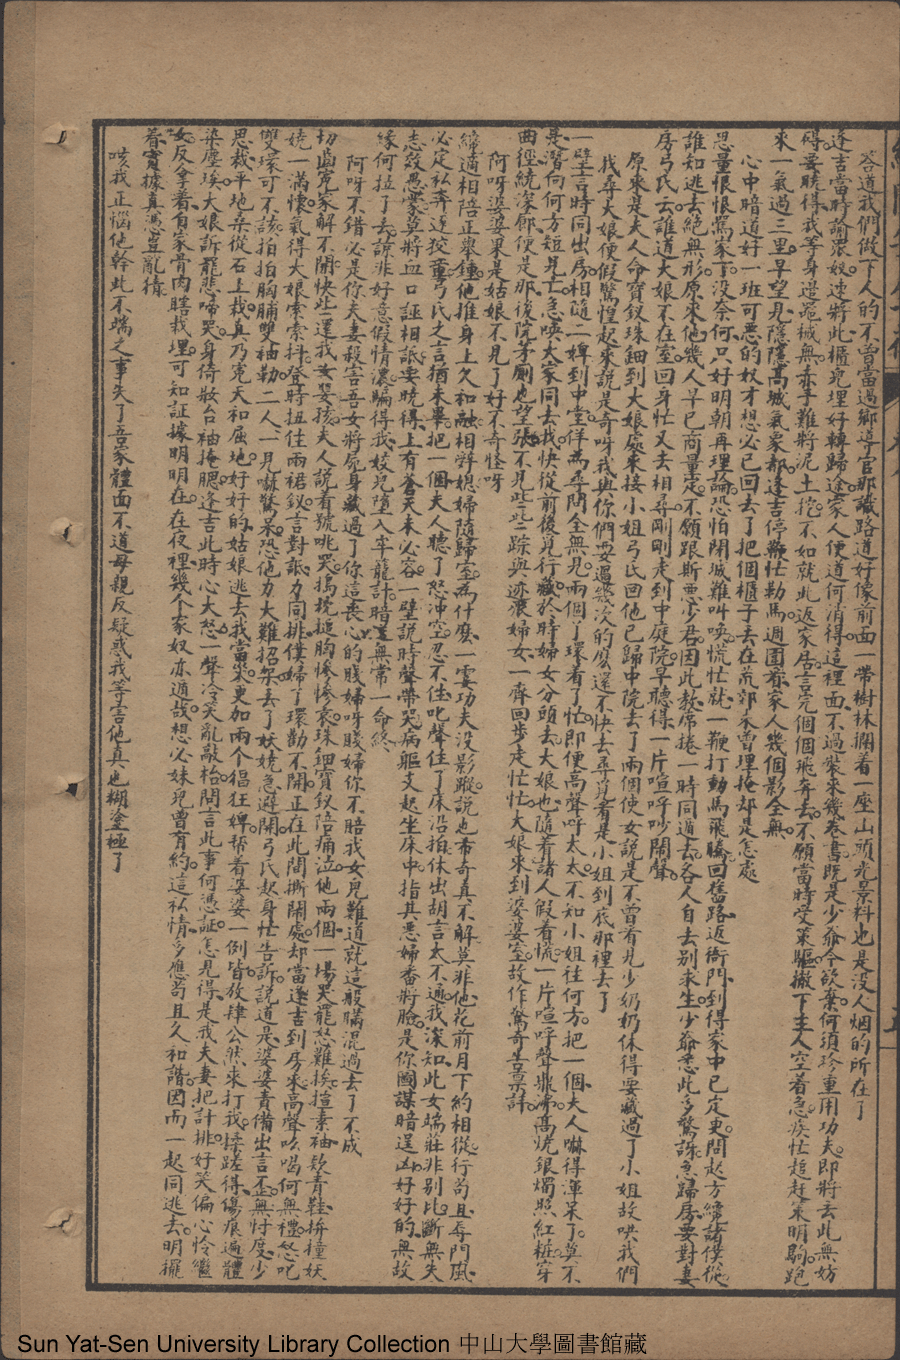 答道我們做下人的不曾當過鄉導官那識路道好像前面一帶樹林擱着一座山頭光景料也是没人烟的所在了
逢吉當時諭衆奴速將此櫃兒埋好轉歸途家人便道何消得這裡面不過裝來幾卷書既是少爺今欲棄何須珍重用功夫即將丢此無妨
碍要曉得我等身邊鍬無赤手難將泥土挖不如就此返家居言完個個飛奔去不願當時受策驅撇下主人空着急疾忙趕策明駒跑
來一氣過三里早望見隱隱高城氣象都逢吉停鞭忙勒馬週圍看家人幾個影全無
心中暗道好一班可惡的奴才想必已回去了把個櫃子丢在荒郊未曾埋掩却是怎處
思量恨恨罵家丁没奈何只好明朝再理論恐怕閉城難叫喚慌忙就一鞭打動馬飛騰回舊路返衙門到得家中已定更問起方纔諸僕從
誰知逃去絕無形原來他幾人早已商量定不願跟斯惡少君因此教席捲一時同遁去各人自去別求生少爺悉此多驚訝急歸房要對妻
房弓氏云誰道大娘不在室回身忙又去相尋剛剛走到中庭院早聽得一片喧呼吵鬧聲
原來是夫人命寶釵珠鈿到大娘處來接小姐弓氏回他已歸中院去了兩個使女說是不曾看見少奶奶休得要藏過了小姐故哄我們
找尋大娘便假驚惶起來說是奇呀我與你們要過幾次的麽還不快去尋尋看是小姐到底那裡去了
一壁言時同出房相隨二婢到中堂佯為尋問全無見兩個丫環看了忙即便高聲呼太太不知小姐往何方把一個夫人嚇得渾呆了莫不
是潛向何方短見亡急喚大家同去找快從前後覓行藏於時婦女分頭去大娘也隨着諸人假看慌一片喧呼聲鼎沸高燒銀燭照紅粧穿
曲徑繞深廊便是那後院茅廁也望張不見些些踪與迹衆婦女一齊回步走忙忙大娘來到婆婆室故作驚奇生景計
阿呀婆婆果是姑娘不見了好不奇怪呀
纔適相陪正舉鍾他推身上欠和融相將媳婦隨歸室為什麽一霎功夫没影蹤說也希奇真不解莫非他花前月下約相從行苟且辱門風
必定私奔逞狡童弓氏之言猶未畢把一個夫人聽了怒冲空忍不住叱聲住了床沿拍休出胡言太不通我深知此女端莊非別比斷無失
志效愚蒙莫將血口誣相詆要曉得上有蒼天未必容一壁說時聲帶哭病軀支起坐床中指其惡婦番將臉是你圖謀暗逞凶好好的無故
緣何拉了去諒非好意假情濃騙得我妓兒墮入牢龍計暗裏無常一命終
阿呀不錯必是你夫妻殺害吾女將屍身藏過了你這喪心的賤婦呀賤婦你不賠我女兒難道就這般瞞混過去了不成
切齒冤家解不開快些還我女嬰孩夫人說看號咷哭搗枕搥胸慘慘哀珠鈿寶釵陪痛泣他兩個一場哭罷怒難挨揎素袖欵青鞋拚撞妖
嬈一滿懷氣得大娘索索抖登時扭住兩裙釵言對詆力同排僕婦丫環勸不開正在此間撕鬧處却當逢吉到房來高聲吆喝何無禮怒叱
雙環可不該拍拍胸脯雙袖勒二人一見嚇驚呆恐他力大難招架丢了妖嬈急避開弓氏起身忙告訴說道是婆婆責備出言歪無忖度少
思裁平地桑從石上栽真乃冤天和屈地好好的姑娘逃去我當災更加兩個猖狂婢帮着婆婆一例皆放肆公然來打我揉蹉得傷痕遍體
染塵埃大娘訴罷悲啼哭身倚敧台袖掩腮逢吉此時心大怒一聲冷笑亂敲枱問言此事何憑証怎見得是我夫妻把計排好笑偏心怜繼
女反拿着自家骨肉瞎栽埋可知証據明明在在夜裡幾個家奴亦遁哉想必妹兒曾有約這私情多應苟且久和諧因而一起同逃去明擺
着實據真憑豈亂猜
咳我正惱他幹此不端之事失了吾家體面不道母親反疑惑我等害他真也糊塗極了
Sun Yat-Sen University Library Collection 中山大學圖書館藏